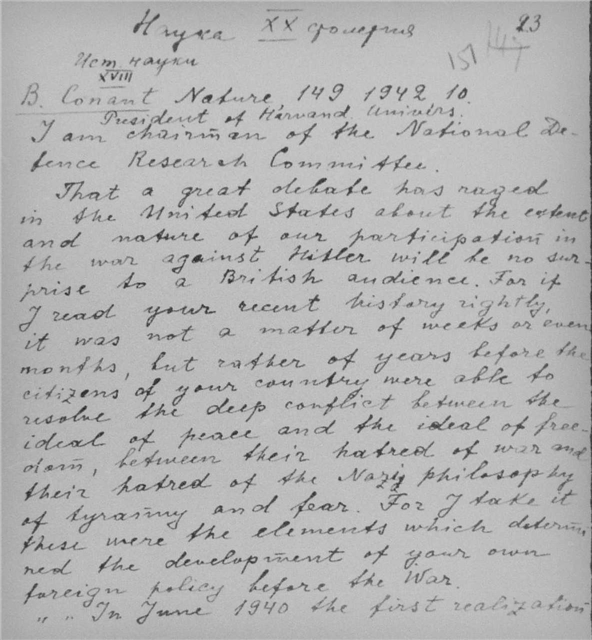 Наука XX столетия 23
Ист. науки 151 147
XVIII
B. Conant Nature 149 1942 10.
President of Harvard Univers.
I am chairman of the National De-
fence Research Committee.
That a great debate has raged
in the United States about the extent
and nature of our participation in
the war against Hitler will be no sur-
prise to a British audience. For if
I read your recent history rightly,
it was not a matter of weeks or even
months, but rather of years before the
citizens of your country were able to
resolve the deep conflict between the
ideal of peace and the ideal of free-
dom, between their hatred of war and
their hatred of the Nazi philosophy
of tyranny and fear. For I take it
these were the elements which determi
ned the development of your own
foreign policy before the War.
" " In June 1940 the first realization